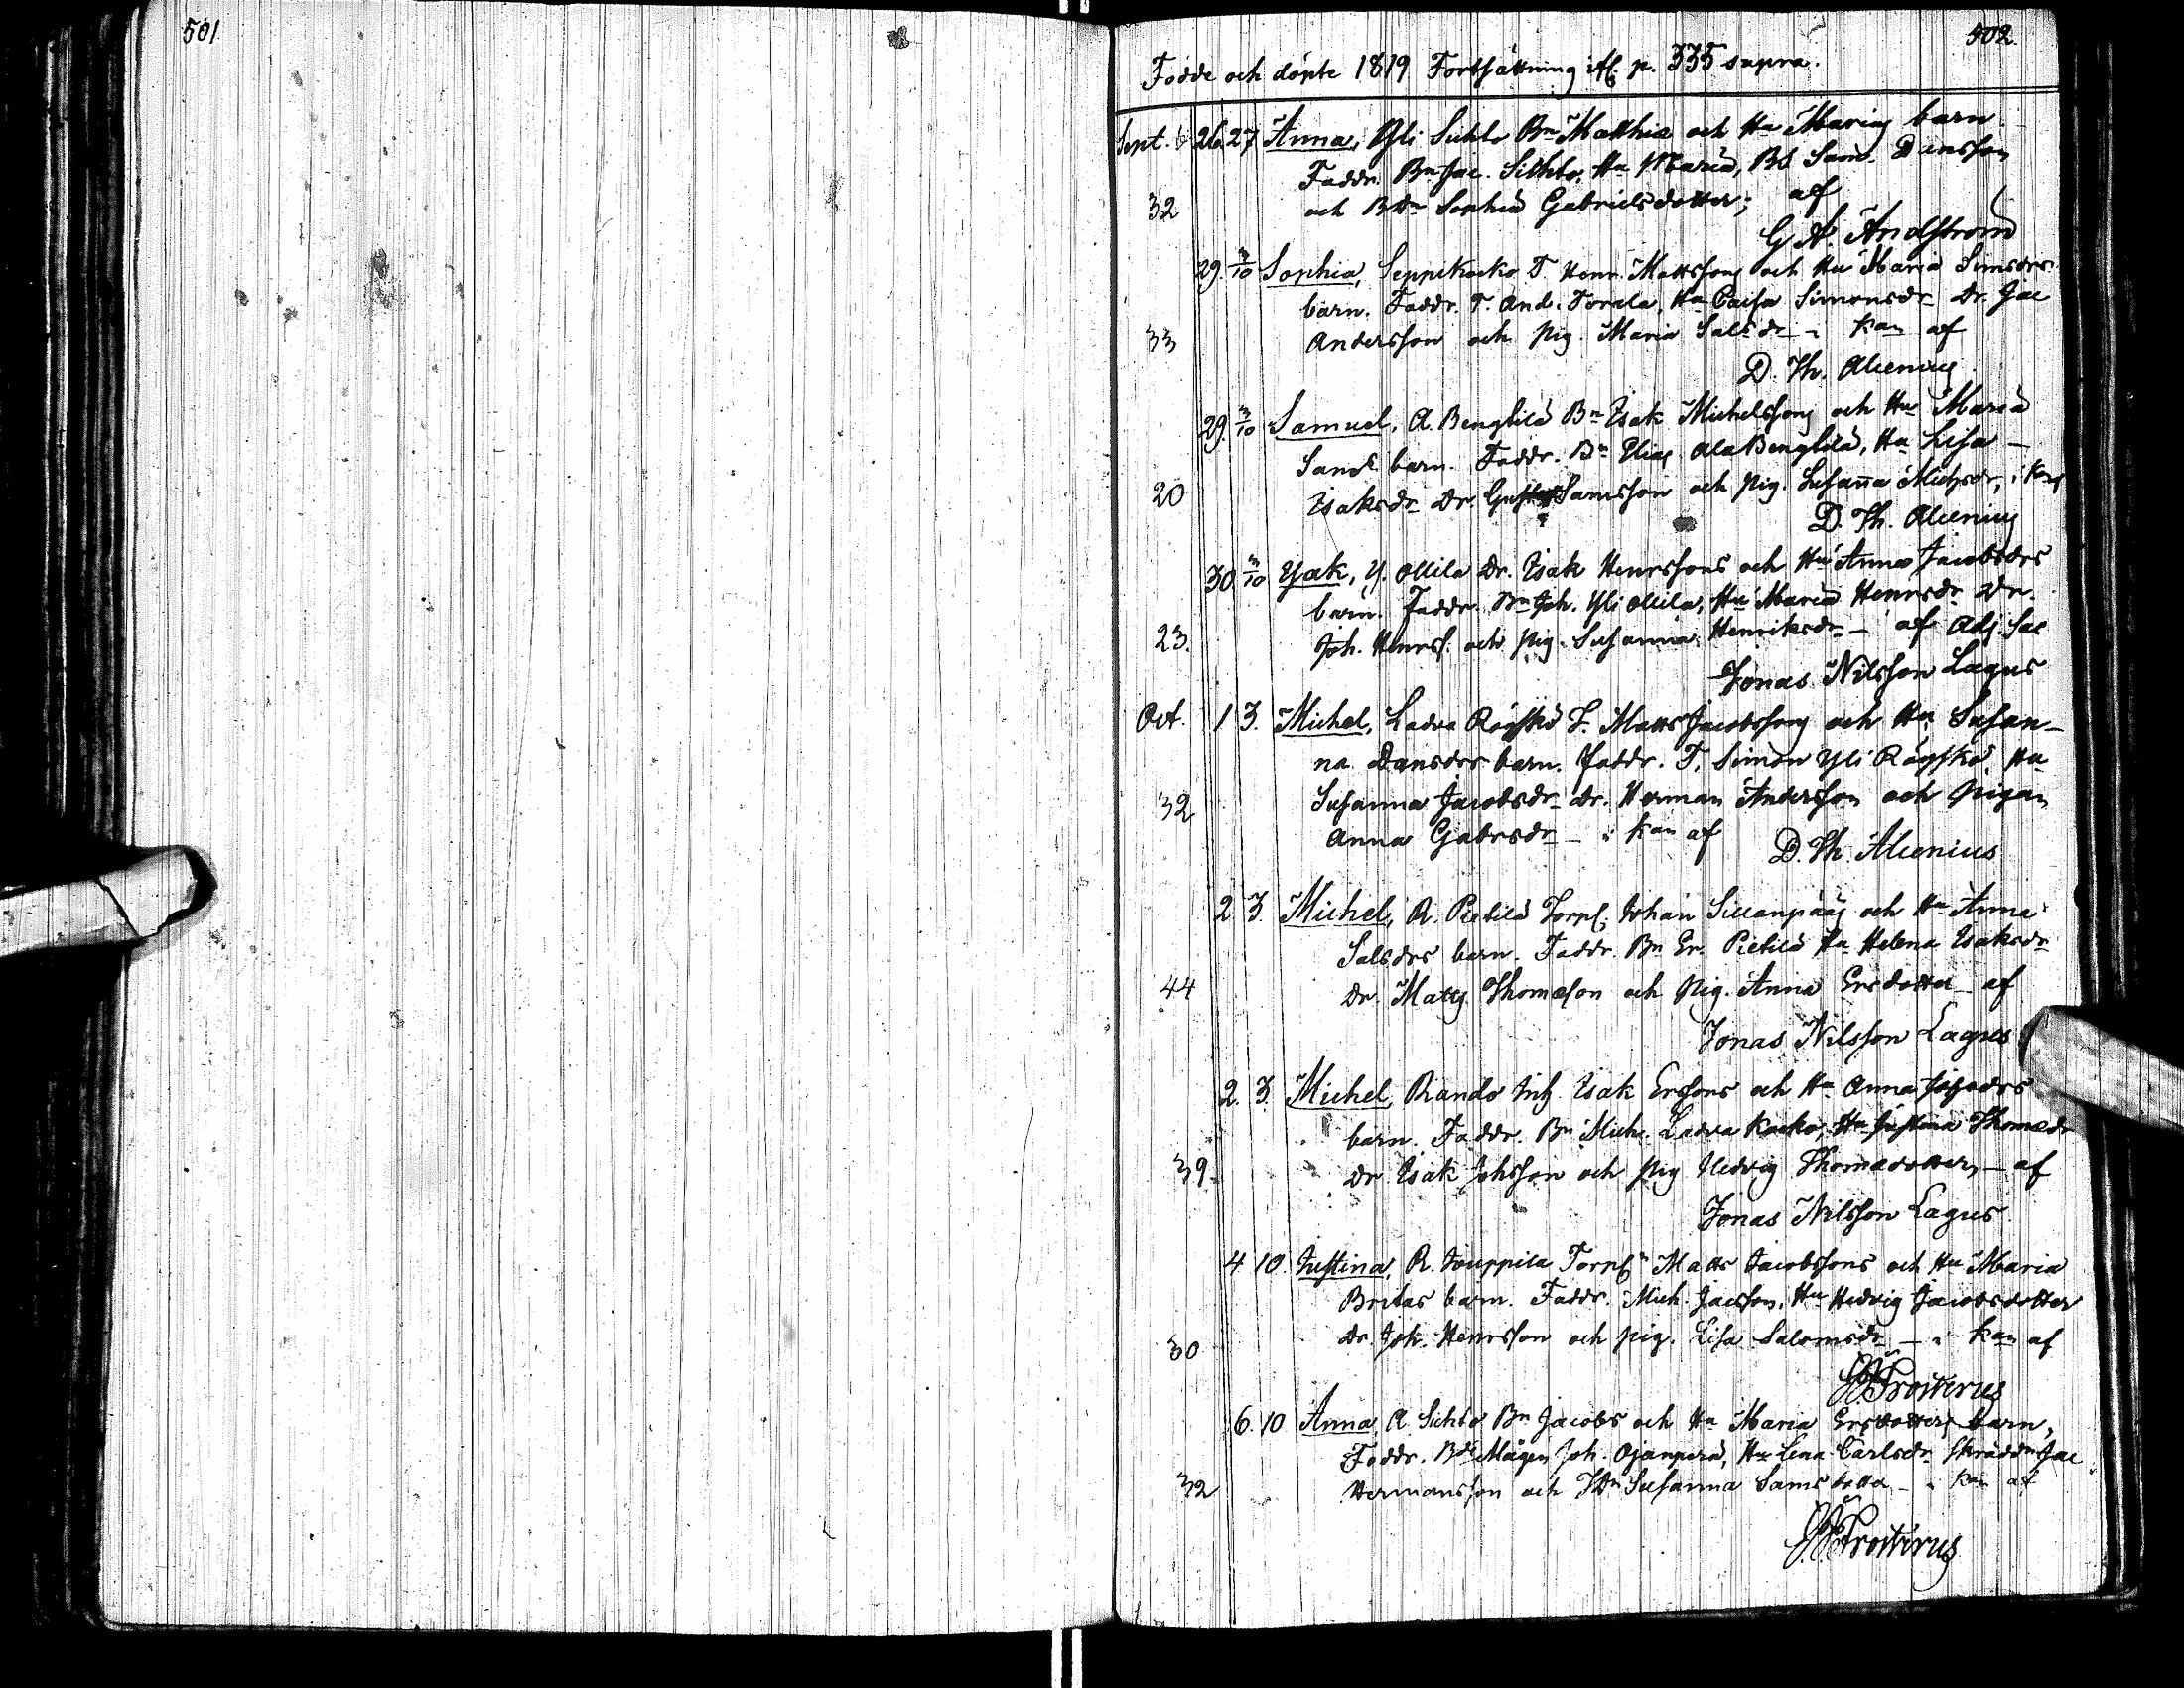 501
502
Födde och döpte 1819 Fortsättning af p. 335 supra.
Sept. 26. 27 Anna, Yli Sichto Bn Matthiæ och Hu Marias barn
Faddr. Bn Jac. Sichto, Hu Maria, BS Sam. Dansson
32 och BDn Sophia Gabrielsdotter; af
G A Andström
29. 3/10 Sophia, Seppikoko T. Henr. Mattssons och Hu Maria Simsdrs
barn. Faddr. T. And. Torala, Hu Caisa Simonsdr Dr. Jac
33 Andersson och Pig. Maria Salsdr - i kan af
D. Th. Alcenius
29. 3/10 Samuel, A. Bengtilä Bn Isak Michelssons och Hu Maria
Sams barn. Faddr. Bn Elias Ala Bengtilä, Hu Lisa -
20 Isaksdr Dr. Samsson och Pig. Susanna Michsdr, i kan
D. Th. Alcenius
30 3/10 Isak, Y. Ollila Dr. Isak Henrssons och Hu Anna Jacobsdrs
barn. Faddr. Bn Joh. Yli Ollila, Hu Maria Henrsdr Dr.
23. Joh. Henrss. och Pig. Susanna Henriksdr - af Adj. Sac
Jonas Nilsson Lagus
Oct. 1 3. Michel, Ladva Röyskö T. Matts Jacobssons och Hu Susan-
na Dansdrs barn. Faddr. T. Simon Yli Röyskö Hu
32 Susanna Jacobsdr Dr. Herman Andersson och Pigan
Anna Gabrsdr - i kan af D. Th. Alcenius
2. 3. Michel, R. Pietilä Torp. Johan Sillanpääs och Hu Anna
Salsdrs barn. Faddr. Bn Er. Pietilä Hu Helena Isaksdr
44 Dr. Matts Thomasson och Pig. Anna Ersdotter af
Jonas Nilsson Lagus
2. 3. Michel, Rando Inh. Isak Erssons och Hu Anna
barn. Faddr. Bn Mich. Ladva Kocko, Hu Justina Thomædr
39. Dr Isak Johsson och Pig Hedvig Thomædotter, - af
Jonas Nilsson Lagus
4 10. Justina, R. Jouppila Torp. Matts Jacobssons och Hu Maria
Britas barn. Faddr. Mich. Jacsson, Hu Hedvig Jacobsdotter
30 Dr. Joh. Henrsson och pig. Lisa Salomsdr - i kan af
Frosterus
6. 10 Anna, A. Sichto Bn Jacobs och Hu Maria Ersdotters barn,
Faddr. Bde Mågen Joh. Ojanperä, Hu Lena Carlsdr Skräddn Jac
32 Hermansson och Susanna Samsdotter - i kan af
Frosterus